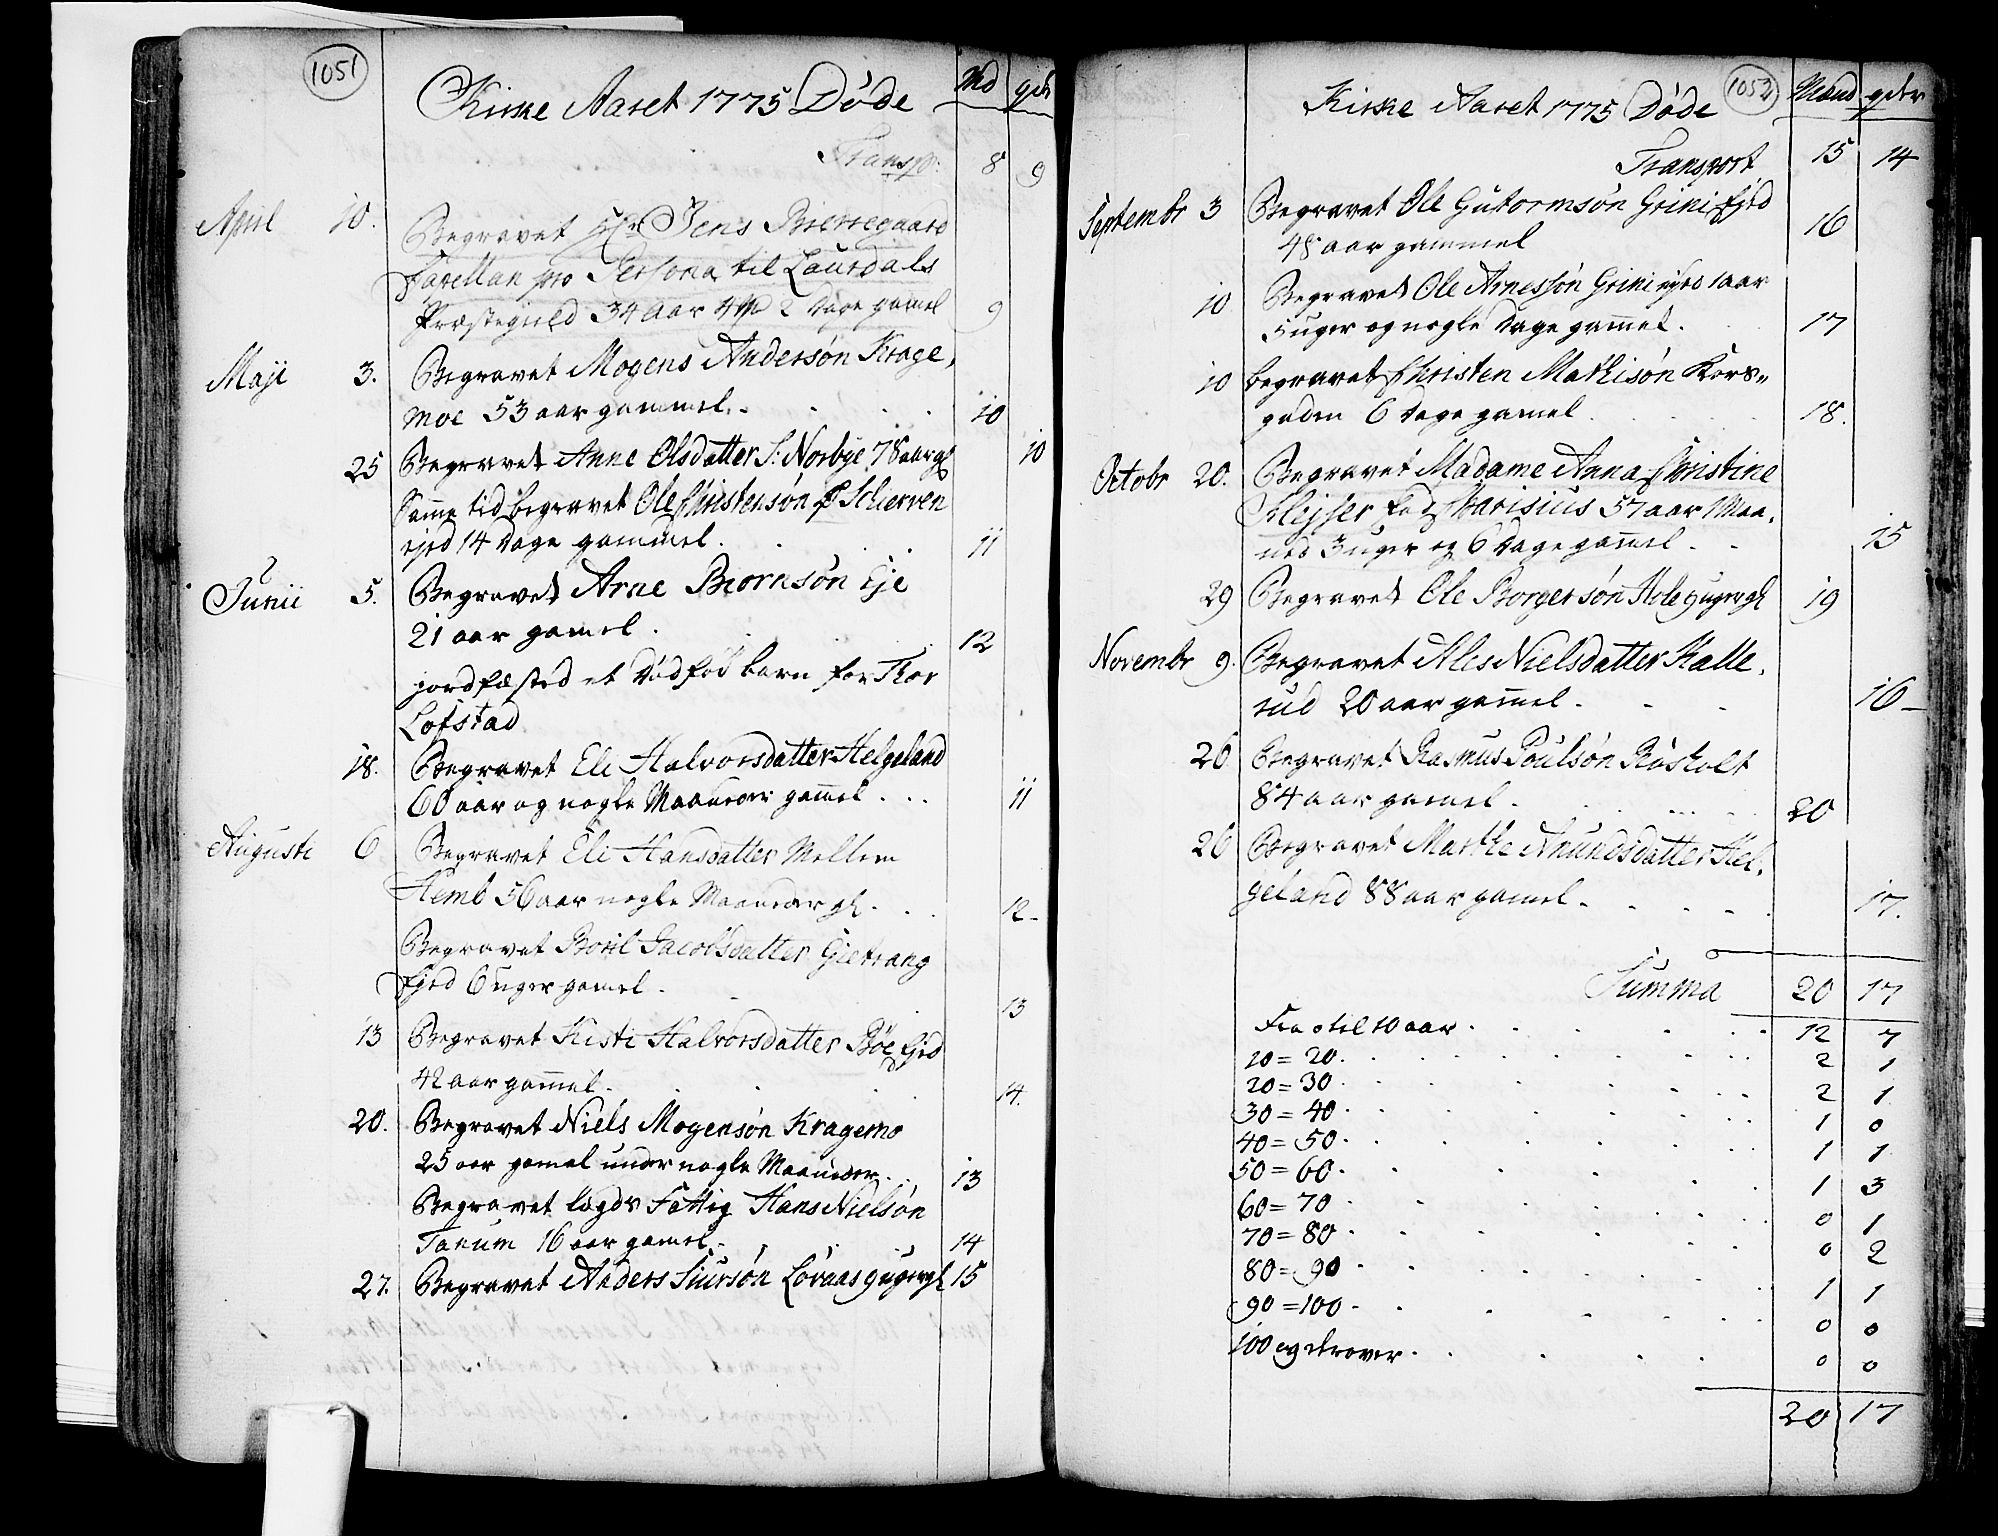 1051
Kirke Aaret 1775 Døde Md qds
Transp: 8 9
April 10. Begravet Hr Jens Bierregaard
Capellan pro Persona til Laurdals
Præstegield 34 Aar 4 M 2 Dage gamel 9
Maji 3. Begravet Mogens Andersøn Krage,
moe 53 aar gammel. 10
25 Begravet Anne Olsdatter S: Norbye 78 aar gl 10
Samme tid begravet Ole Christensøn Schierven
ejed 14 Dage gammel. 11
Junii 5. Begravet Arne Biornsøn Eje
21 aar gamel. 12
jordfæsted et Dødfød barn for Thor
Lofstad
18. Begravet Eli Halvorsdatter Helgeland
60 aar og nogle Maaneder gam̄el 11
Augusti 6 Begravet Eli Hansdatter Mellem
Hemb 56 aar nogle Maaneder gl. 12
Begravet Boril Jacobsdatter Gietrang
Ejed 6 uger gamel. 13
13 Begravet Kisti Halvorsdatter Bøe Ejed
42 aar gam̄el. 14.
20. Begravet Niels Mogensøn Kragemo
25 aar gamel under nogle Maaneder. 13
Begravet lægds Fattig Hans Nielsøn
Tanum 16 aar gamel. 14
27. Begravet Anders Siursøn Lovaas 9 uger gl 15
1052
Kirke Aaret 1775 Døde Mænd qder
Transport 15 14
Septembr 3 Begravet Ole Gutormsøn Grini Ejed
48 aar gammel 16
10 Begravet Ole Arnessøn Grini ejed 1 aar
5 uger og nogle Dage gam̄el. 17
10 begravet Christen Mathisøn Kors=
gaden 6 Dage gamel 18.
Octobr 20. Begravet Madame Anna Christine
Klejser fød Marisius 57 aar 1 Maa,
ned 3 uger og 6 Dage gam̄el 15
29 Begravet Ole Borgersøn Hole 9 uger gl 19
Novembr 9. Begravet Ales Nielsdatter Kalle,
rud 20 aar gam̄el. 16
26 Begravet Rasmus Poulsøn Røsholt
84 aar gamel. 20
26 Begravet Marthe Anundsdatter Hel,
geland 88 aar gamel. 17.
Summa 20 17
Fra 0 til 10 aar 12 7
10 = 20. 2 1
20 = 30. 2 1
30 = 40. 1 0
40 = 50. 1 1
50 = 60. 1 3
60 = 70 0 1
70 = 80. 0 2
80 = 90. 1 1
90 = 100. 0 0
100 og derover. 0 0
20 17